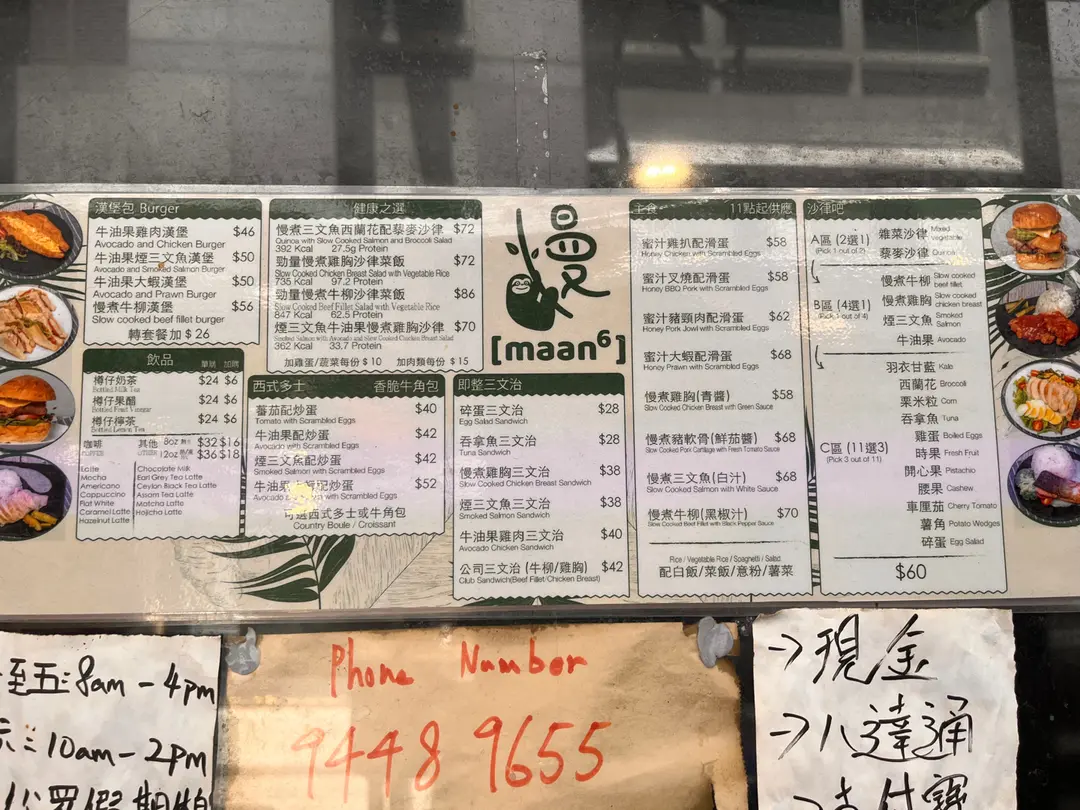 漢堡包 Burger
牛油果雞肉漢堡 $46
Avocado and Chicken Burger
牛油果煙三文魚漢堡 $50
Avocado and Smoked Salmon Burger
牛油果大蝦漢堡 $50
Avocado and Prawn Burger
慢煮牛柳漢堡 $56
Slow cooked beef fillet burger
轉套餐加 $26
飲品 單購 加購
樽仔奶茶 $24 $6
Bottled Milk Tea
樽仔果醋 $24 $6
Bottled Fruit Vinegar
樽仔檸茶 $24 $6
Bottled Lemon Tea
咖啡 其他 8oz $32 $16
COFFEE OTHERS 12oz $36 $18
Latte
Mocha
Americano
Cappuccino
Flat White
Caramel Latte
Hazelnut Latte
Chocolate Milk
Earl Grey Tea Latte
Ceylon Black Tea Latte
Assam Tea Latte
Matcha Latte
Hojicha Latte
健康之選
慢煮三文魚西蘭花配藜麥沙律 $72
Quinoa with Slow Cooked Salmon and Broccoli Salad
392 Kcal 27.5g Protein
勁量慢煮雞胸沙律菜飯 $72
Slow Cooked Chicken Breast Salad with Vegetable Rice
735 Kcal 97.2 Protein
勁量慢煮牛柳沙律菜飯 $86
Slow Cooked Beef Fillet Salad with Vegetable Rice
847 Kcal 62.5 Protein
煙三文魚牛油果慢煮雞胸沙律 $70
Smoked Salmon with Avocado and Slow Cooked Chicken Breast Salad
362 Kcal 33.7 Protein
加雞蛋/蔬菜每份 $10 加肉類每份 $15
西式多士 香脆牛角包
蕃茄配炒蛋 $40
Tomato with Scrambled Eggs
牛油果配炒蛋 $42
Avocado with Scrambled Eggs
煙三文魚配炒蛋 $42
Smoked Salmon with Scrambled Eggs
牛油果 配炒蛋 $52
Avocado with Scrambled Eggs
可選西式多士或牛角包
Country Boule / Croissant
慢
[maan⁶]
即整三文治
碎蛋三文治 $28
Egg Salad Sandwich
吞拿魚三文治 $28
Tuna Sandwich
慢煮雞胸三文治 $38
Slow Cooked Chicken Breast Sandwich
煙三文魚三文治 $38
Smoked Salmon Sandwich
牛油果雞肉三文治 $40
Avocado Chicken Sandwich
公司三文治 (牛柳/雞胸) $42
Club Sandwich(Beef Fillet/Chicken Breast)
主食 11點起供應
蜜汁雞扒配滑蛋 $58
Honey Chicken with Scrambled Eggs
蜜汁叉燒配滑蛋 $58
Honey BBQ Pork with Scrambled Eggs
蜜汁豬頸肉配滑蛋 $62
Honey Pork Jowl with Scrambled Eggs
蜜汁大蝦配滑蛋 $68
Honey Prawn with Scrambled Eggs
慢煮雞胸(青醬) $58
Slow Cooked Chicken Breast with Green Sauce
慢煮豬軟骨(鮮茄醬) $68
Slow Cooked Pork Cartilage with Fresh Tomato Sauce
慢煮三文魚(白汁) $68
Slow Cooked Salmon with White Sauce
慢煮牛柳(黑椒汁) $70
Slow Cooked Beef Fillet with Black Pepper Sauce
Rice / Vegetable Rice / Spaghetti / Salad
配白飯/菜飯/意粉/薯菜
沙律吧
A區 (2選1)
(Pick 1 out of 2)
雜菜沙律 Mixed vegetable
藜麥沙律 Quinoa
B區 (4選1)
(Pick 1 out of 4)
慢煮牛柳 Slow cooked beef fillet
慢煮雞胸 Slow cooked chicken breast
煙三文魚 Smoked Salmon
牛油果 Avocado
C區 (11選3)
(Pick 3 out of 11)
羽衣甘藍 Kale
西蘭花 Broccoli
粟米粒 Corn
吞拿魚 Tuna
雞蛋 Boiled Eggs
時果 Fresh Fruit
開心果 Pistachio
腰果 Cashew
車厘茄 Cherry Tomato
薯角 Potato Wedges
碎蛋 Egg Salad
$60
至五: 8am - 4pm
10am - 2pm
公眾假期
Phone Number
9448 9655
→ 現金
→ 八達通
→ 支付寶